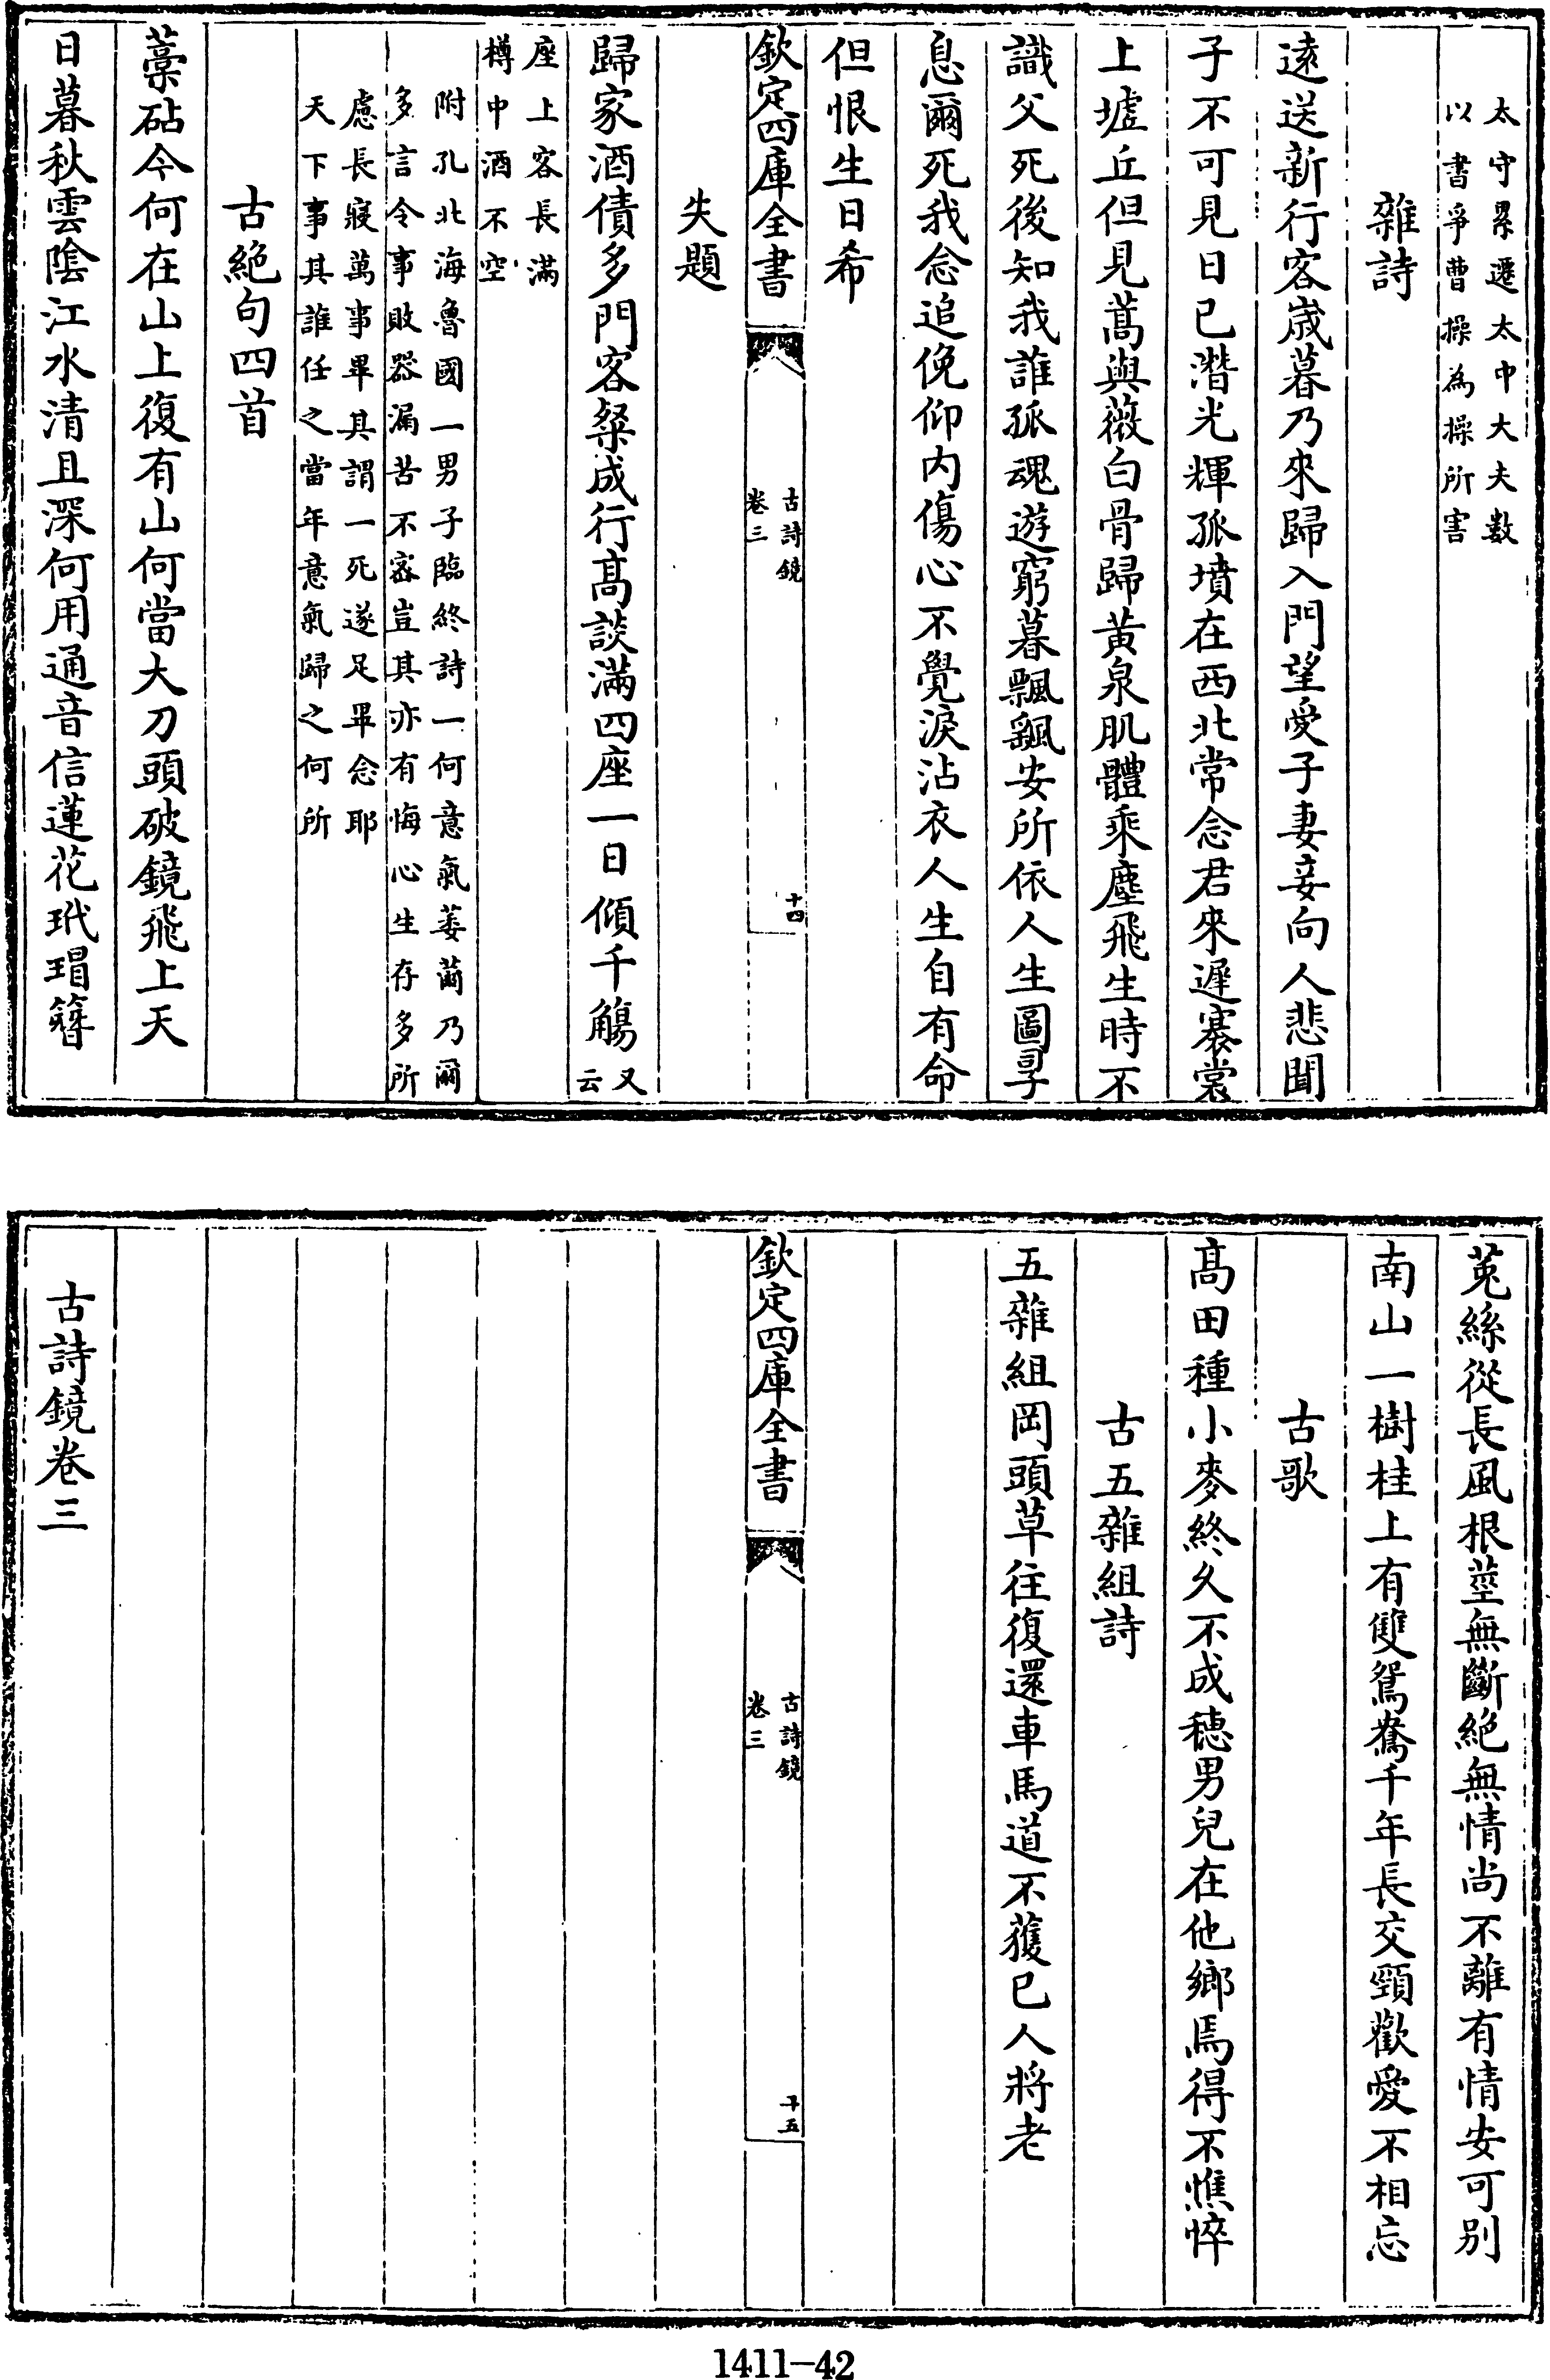 太守累遷太中大夫數
以書爭曹操為操所害
雜詩
逺送新行客歳暮乃來歸入門望愛子妻妾向人悲聞
子不可見日已潛光輝孤墳在西北常念君來遲褰裳
上墟丘但見蒿與薇白骨歸黃泉肌體乘塵飛生時不
識父死後知我誰孤魂遊窮暮飄颻安所依人生圖㝷
息爾死我念追俛仰内傷心不覺淚沾衣人生自有命
但恨生日希
欽定四庫全書
古詩鏡
卷三
十四
失題
歸家酒債多門客粲成行髙談滿四座一日傾千觴又
云
座上客長滿
樽中酒不空
附孔北海魯國一男子臨終詩一何意氣萎薾乃爾
多言令事敗器漏苦不宻豈其亦有悔心生存多所
慮長寢萬事畢其謂一死遂足畢念耶
天下事其誰任之當年意氣歸之何所
古絶句四首
藁砧今何在山上復有山何當大刀頭破鏡飛上天
日暮秋雲陰江水清且深何用通音信蓮花玳瑁簪
莵絲從長風根莖無斷絶無情尚不離有情安可别
南山一樹桂上有雙鴛鴦千年長交頸歡愛不相忘
古歌
髙田種小麥終久不成穗男兒在他鄉焉得不憔悴
古五雜組詩
五雜組岡頭草往復還車馬道不獲已人將老
欽定四庫全書
古詩鏡
卷三
十五
古詩鏡卷三
1411-42